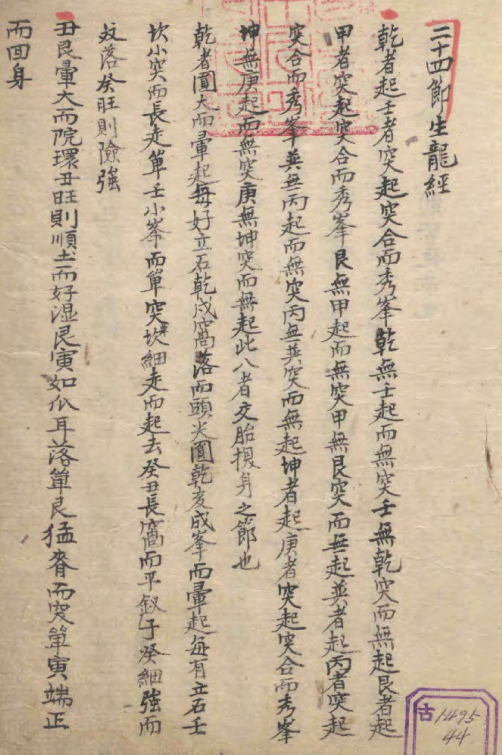 二十四節生龍經
乾者起壬者突起突合而秀峯乾無壬起而無突壬無乾突而無起艮者起
甲者突起突合而秀峯艮無甲起而無突甲無艮突而無起巽者起丙者突起
突合而秀峯巽無丙起而無突丙無巽突而無起坤者起庚者突起突合而秀峯
坤無庚起而無突庚無坤突而無起此八者交胎換身之節也
乾者圓大而暈起每好立石乾戌窩落而頭火圓乾亥成峯而暈起每有立石壬
坎小突而長走單壬小峯而單突坎細走而起去癸丑長窩而平釵子癸細強而
妏落癸旺則險強
丑艮暈大而院環丑旺則順土而好湿艮寅如爪耳落單艮猛脊而突單寅端正
而回身
古1495
44